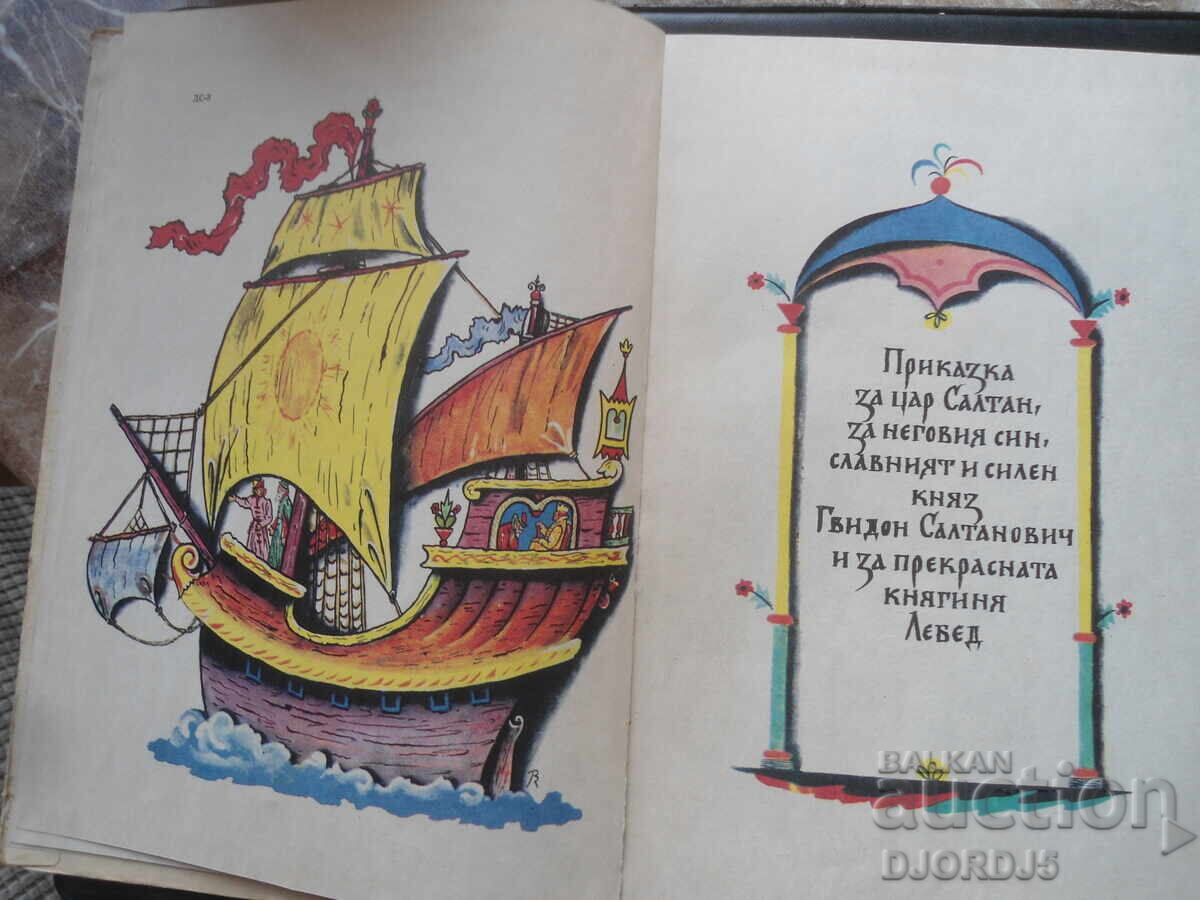 ДС-3
Приказка
за цар Салтан,
за неговия син,
славният и силен
княз
Гвидон Салтанович
и за прекрасната
княгиня
Лебед
BALKAN
auction
DJORDJ5